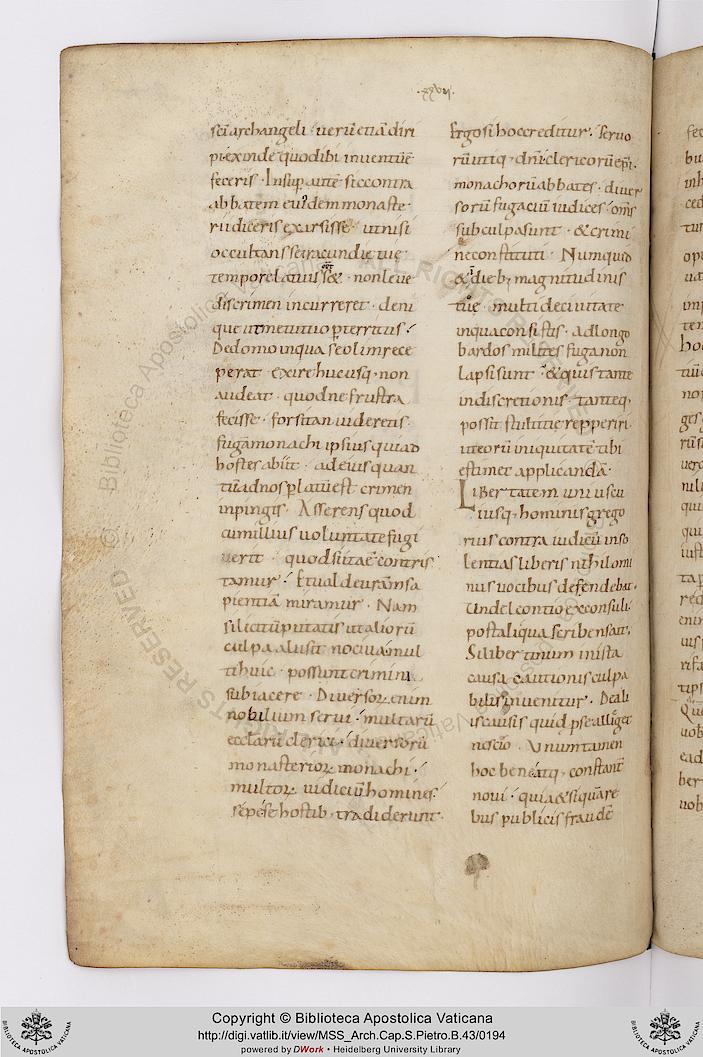 ·xxvi·
sci archangeli · verū etiā diri
pi exinde quod ibi inventūē
feceris · Insup autē si contra
abbatem eiusdem monaste
rii diceris exarsisse · ut nisi
occultans se iracundie tue
tempore latuisset · non leve
discrimen incurreret · deni
que
De domo in qua se olim rece
perat exire hucusq · non
audeat · quod ne frustra
fecisse · forsitan videretis
fugā monachi ipsius qui ad
hostes abiit · ad eius quan
tū ad nos platū est crimen
inpingis · Asserens quod
cum illius voluntate fugi
verit · quod si ita ē contris
tamur · Et valde vrām sa
pientiā miramur · Nam
si licitū putatis ut aliorū
culpa alusit
ti huic · possunt crimini
subiacere · Diversoꝝ enim
nobilium servi · multarū
ecclarū clerici · diversorū
monasterioꝝ monachi ·
multoꝝ iudiciū homines
sepe se hostib · tradiderunt ·
Ergo si hoc creditur · servo
rū utiq · dni clericorū epi ·
monachorū abbates · diver
sorū fugaciū iudices · oms
sub culpa sunt · & crimi
ne constituti · Numquid
& die b; magnitudinis
tuę · multi de civitate
in qua consistis · ad longo
bardos milites fuga non
lapsi sunt · & quis tante
indiscretionis · tanteq ·
possit stultitię repperiri ·
ut eorū iniquitatē tibi
estimet applicandā ·
Libertatem uniuscu
iusq · hominis grego
rius contra iudicū inso
lentias liberis nihilomi
nus vocibus defendebat ·
Unde Leontio exconsuli ·
post aliqua scribens ait ·
Si libertinum in ista
causa cautionis culpa
bilis invenitur · De ali
is causis quid pse alliget
nescio · Unum tamen
hoc bene atq · constant
novi · quia & si quare
bus publicis fraudē
Copyright © Biblioteca Apostolica Vaticana
http://digi.vatlib.it/view/MSS_Arch.Cap.S.Pietro.B.43/0194
powered by DWork • Heidelberg University Library